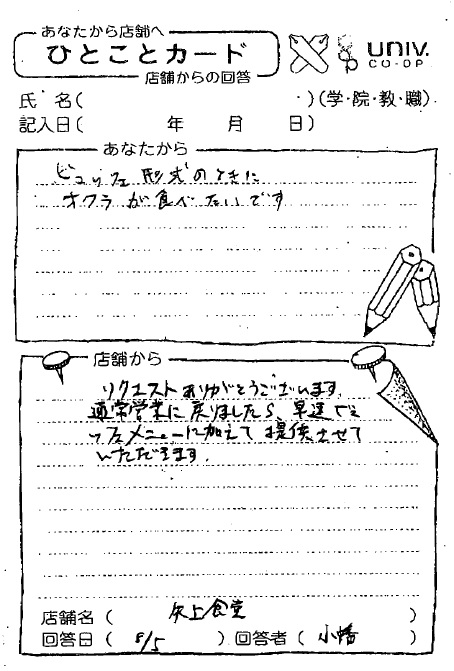 あなたから店舗へ
ひとことカード
店舗からの回答
UNIV.
CO-OP
氏 名( )(学・院・教・職)
記入日( 年 月 日)
あなたから
ビュッフェ形式のときに
オクラが食べたいです
店舗から
リクエストありがとうございます.
通常営業に戻りましたら、早速ビュ
ッフェメニューに加えて提供させて
いただきます.
店舗名( 矢上食堂 )
回答日( 8/5 )回答者( 小幡 )